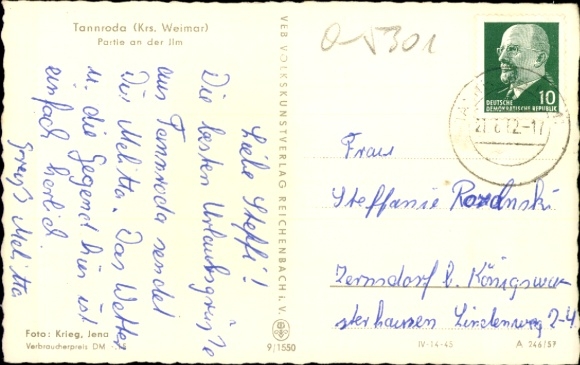 Tannroda (Krs. Weimar)
Partie an der Ilm
Liebe Steffi!
Die besten Urlaubsgrüße
aus Tannroda sendet
Dir Melitta. Das Wetter
u. die Gegend hier ist
einfach herrlich.
Gruß Melitta
Foto: Krieg, Jena
Verbraucherpreis DM
VEB VOLKSKUNSTVERLAG REICHENBACH i. V.
9/1550
O-5301
DEUTSCHE
DEMOKRATISCHE REPUBLIK
10
Frau
Steffanie
Zernsdorf b. Königswu-
sterhausen Lindenweg 2-4
IV-14-45
A 246/57